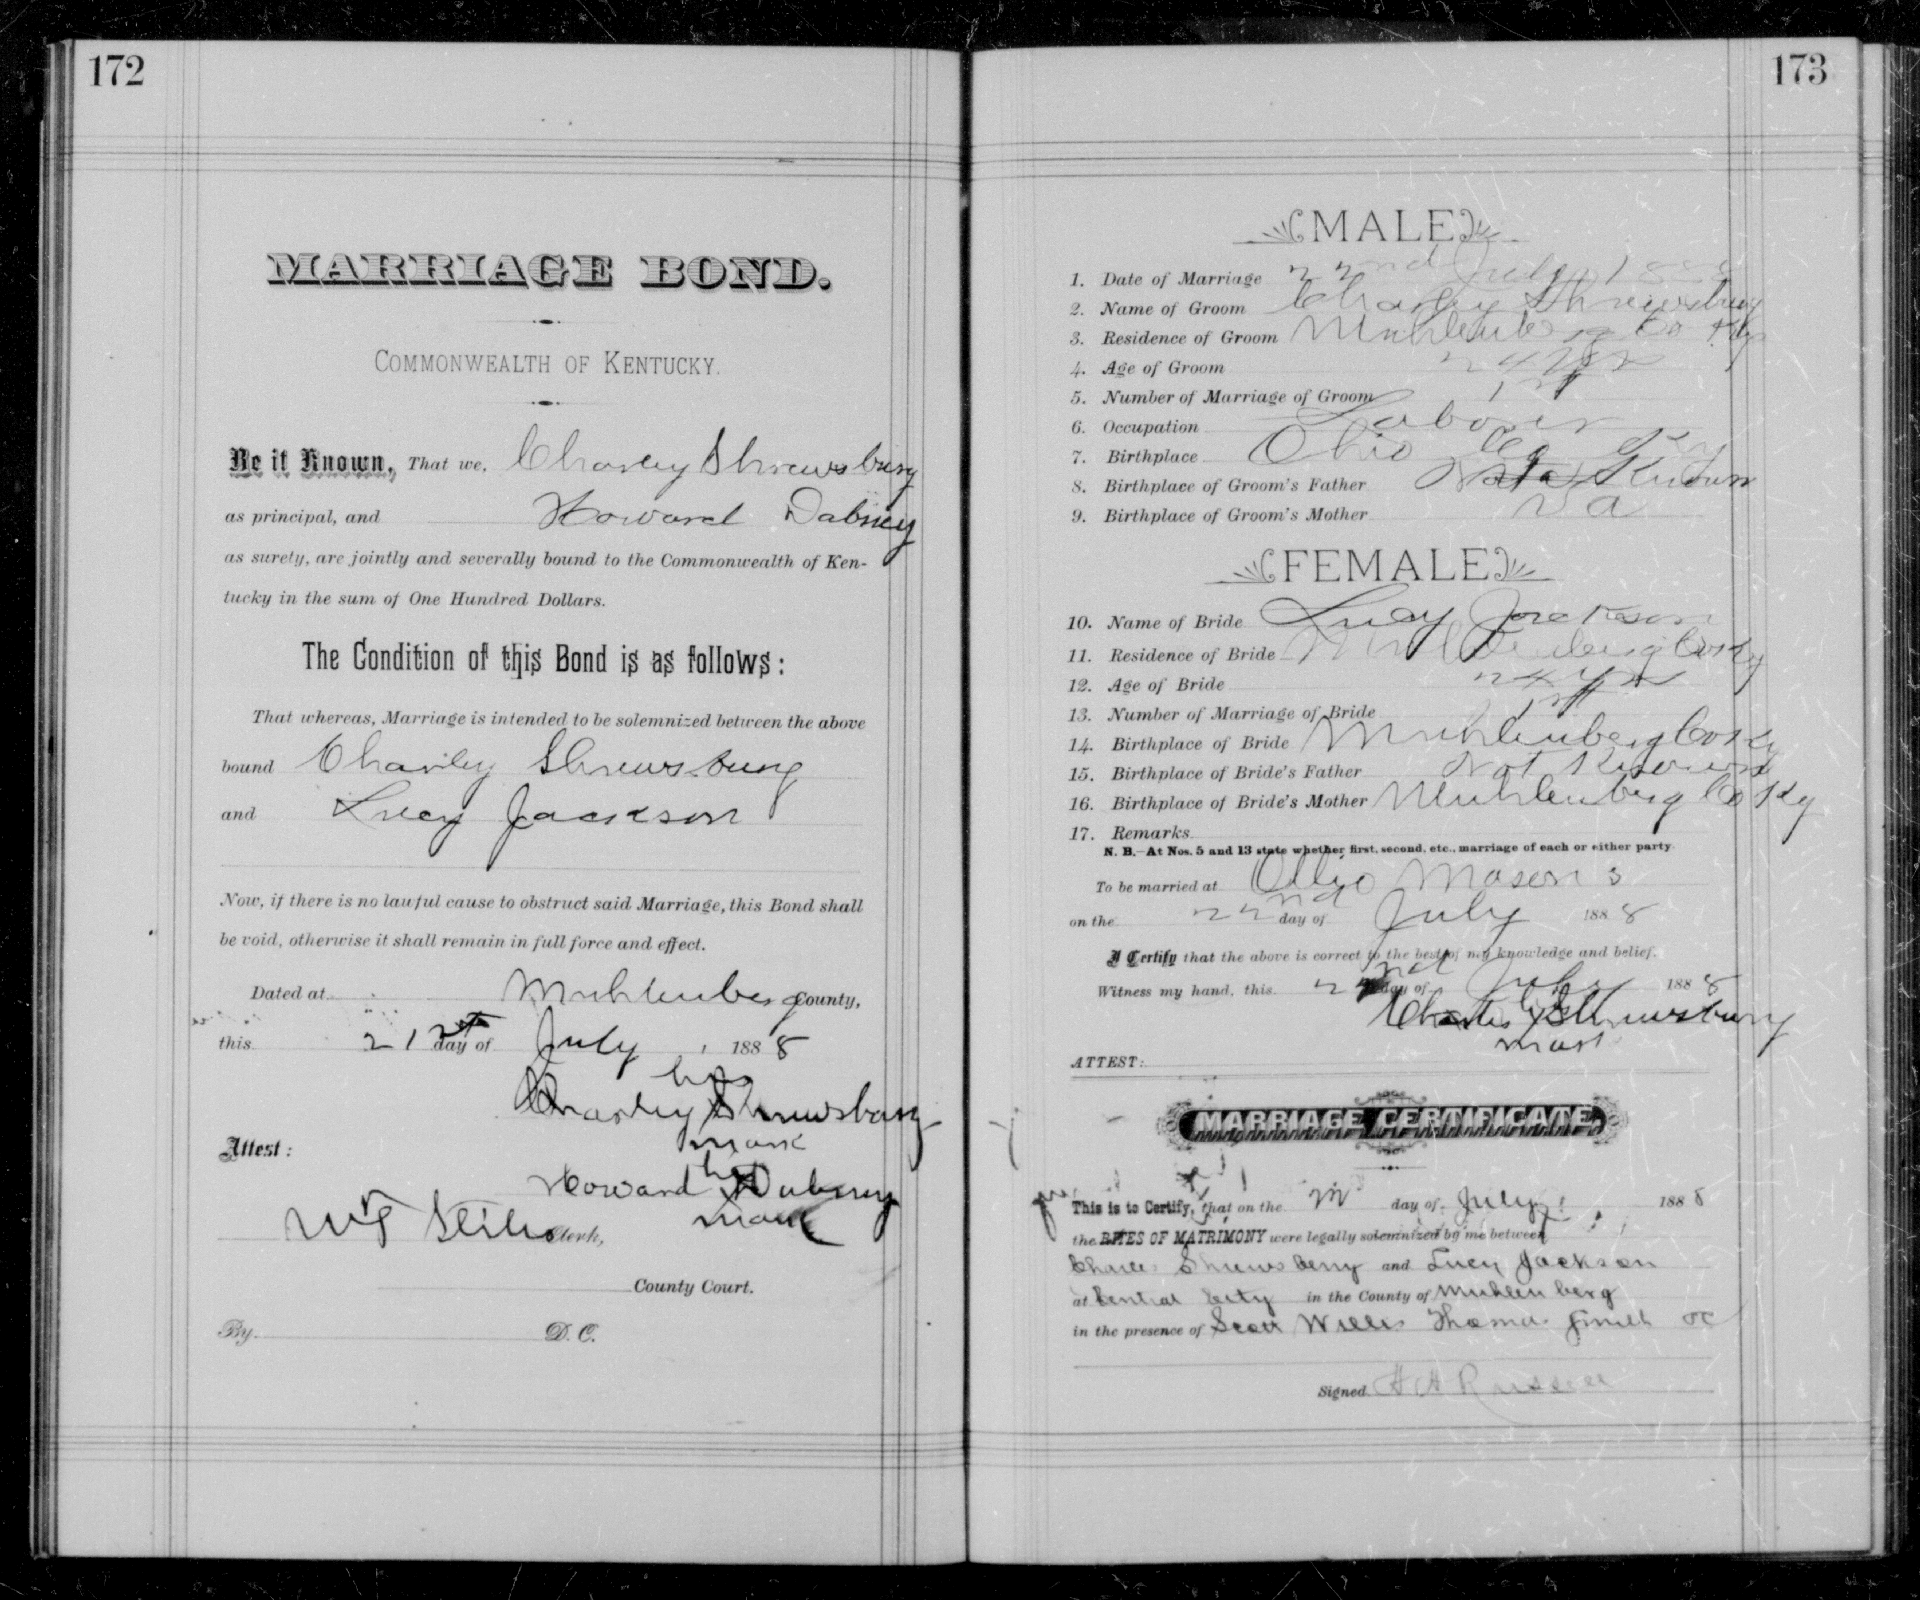 172
MARRIAGE BOND.
COMMONWEALTH OF KENTUCKY.
Be it Known, That we, Charley Shrewsbury
as principal, and Howard Dabney
as surety, are jointly and severally bound to the Commonwealth of Ken-
tucky in the sum of One Hundred Dollars.
The Condition of this Bond is as follows:
That whereas, Marriage is intended to be solemnized between the above
bound Charley Shrewsbury
and Lucy Jackson
Now, if there is no lawful cause to obstruct said Marriage, this Bond shall
be void, otherwise it shall remain in full force and effect.
Dated at Muhlenberg County,
this 21 day of July, 1888
his
Charley X Shrewsbury
mark
Attest:
his
Howard X Dabney
mark
Clerk,
County Court.
By D. C.
173
MALE
1. Date of Marriage 22nd July 1888
2. Name of Groom Charley Shrewsbury
3. Residence of Groom Muhlenberg Co Ky
4. Age of Groom 24 yrs
5. Number of Marriage of Groom 1st
6. Occupation Laborer
7. Birthplace Ohio Co Ky
8. Birthplace of Groom's Father Not Known
9. Birthplace of Groom's Mother Va
FEMALE
10. Name of Bride Lucy Jackson
11. Residence of Bride Muhlenberg Co Ky
12. Age of Bride 24 yrs
13. Number of Marriage of Bride 1st
14. Birthplace of Bride Muhlenberg Co Ky
15. Birthplace of Bride's Father Not Known
16. Birthplace of Bride's Mother Muhlenberg Co Ky
17. Remarks
N. B.—At Nos. 5 and 13 state whether first, second, etc., marriage of each or either party
To be married at Mason s
on the 22nd day of July 1888
I Certify that the above is correct to the best of my knowledge and belief.
Witness my hand, this 22nd day of July 1888
his
Charles X Shrewsbury
mark
ATTEST:
MARRIAGE CERTIFICATE
This is to Certify, that on the 22 day of July 1888
the RITES OF MATRIMONY were legally solemnized by me between
Charles Shrewsberry and Lucy Jackson
at Central City in the County of Muhlenberg
in the presence of Scott Willis Thomas Smith
Signed H H Russell